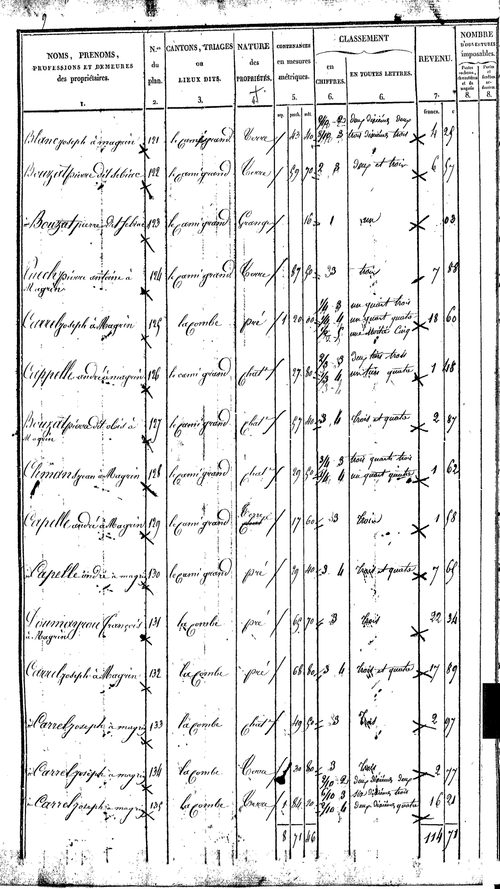 9
NOMS, PRENOMS,
PROFESSIONS ET DEMEURES
des propriétaires.
N.os
du
plan.
CANTONS, TRIAGES
ou
LIEUX DITS.
NATURE
des
PROPRIÉTÉS.
CONTENANCES
en mesures
métriques.
CLASSEMENT
en
CHIFFRES.
EN TOUTES LETTRES.
REVENU.
NOMBRE
D'OUVERTURES
imposables.
1. 2. 3. 4. 5. 6. 6. 7. 8. 8.
francs. c
Blanc joseph à magrin 121 le cami grand Terre 43 40 2/10 2 deux dixiemes deux 4 25
Bouzat pierre dit lebiou 122 le cami grand Terre 59 70 2 3 deux et trois 6 57
Bouzat pierre dit 123 le cami grand Grange 16 1 un 03
Puech pierre antoine à Magrin 124 le cami grand Terre 87 50 3 trois 7 88
Carrel joseph à Magrin 125 la combe pré 1 20 00 1/4 3 un quart trois
1/4 4 un quart quatre 18 60
une moitié cinq
Cappelle andré à magrin 126 le cami grand chat.e 27 80 2/3 3 deux tiers trois
1/3 4 un tiers quatre 1 48
Bouzat pierre dit à Magrin 127 le cami grand chat.e 57 40 3 4 trois et quatre 2 87
jean à Magrin 128 le cami grand chat.e 29 50 3/4 3 trois quarts trois
1/4 4 un quart quatre 1 62
Capelle andré à Magrin 129 le cami grand 17 60 3 trois 1 58
Capelle andré à magrin 130 le cami grand pré 29 40 3 4 trois et quatre 7 65
françois à Magrin 131 la combe pré 65 70 3 trois 22 34
Carrel joseph à Magrin 132 la combe pré 68 80 3 4 trois et quatre 17 89
Carrel joseph à magrin 133 la combe chat.e 49 50 3 trois 2 97
Carrel joseph à magrin 134 la combe Terre 30 80 3 trois 2 77
Carrel joseph à magrin 135 la combe Terre 1 84 20 2/10 2 deux dixiemes deux
6/10 3 six dixiemes trois 16 21
2/10 4 deux dixiemes quatre
8 71 46 114 71